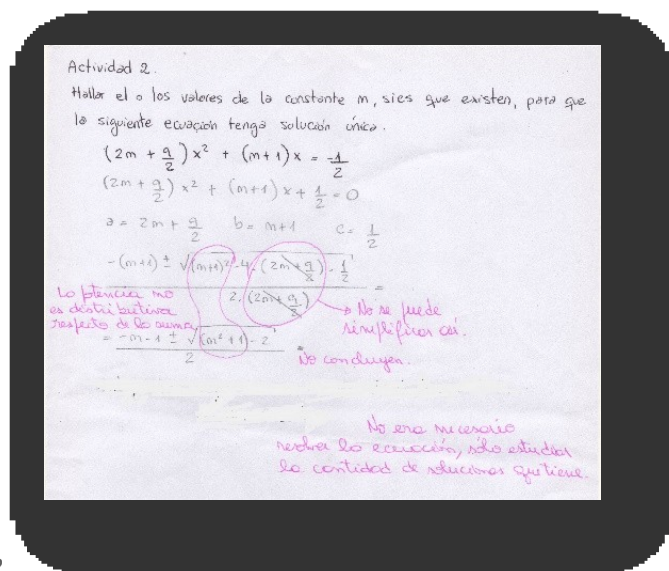 Actividad 2.
Hallar el o los valores de la constante m, si es que existen, para que
la siguiente ecuación tenga solución única.
(2m + 9/2) x² + (m+1) x = -1/2
(2m + 9/2) x² + (m+1) x + 1/2 = 0
a = 2m + 9/2   b = m+1   c = 1/2
-(m+1) ± √(m+1)² - 4 · (2m + 9/2) · 1/2 =
2 · (2m + 9/2)
Lo potencia no
es distributiva
respecto de la suma
No se puede
simplificar así.
= -m - 1 ± √(m² + 1) - 2 =
2
No concluyen.
No era necesario
resolver la ecuación, sólo estudiar
la cantidad de soluciones que tiene.